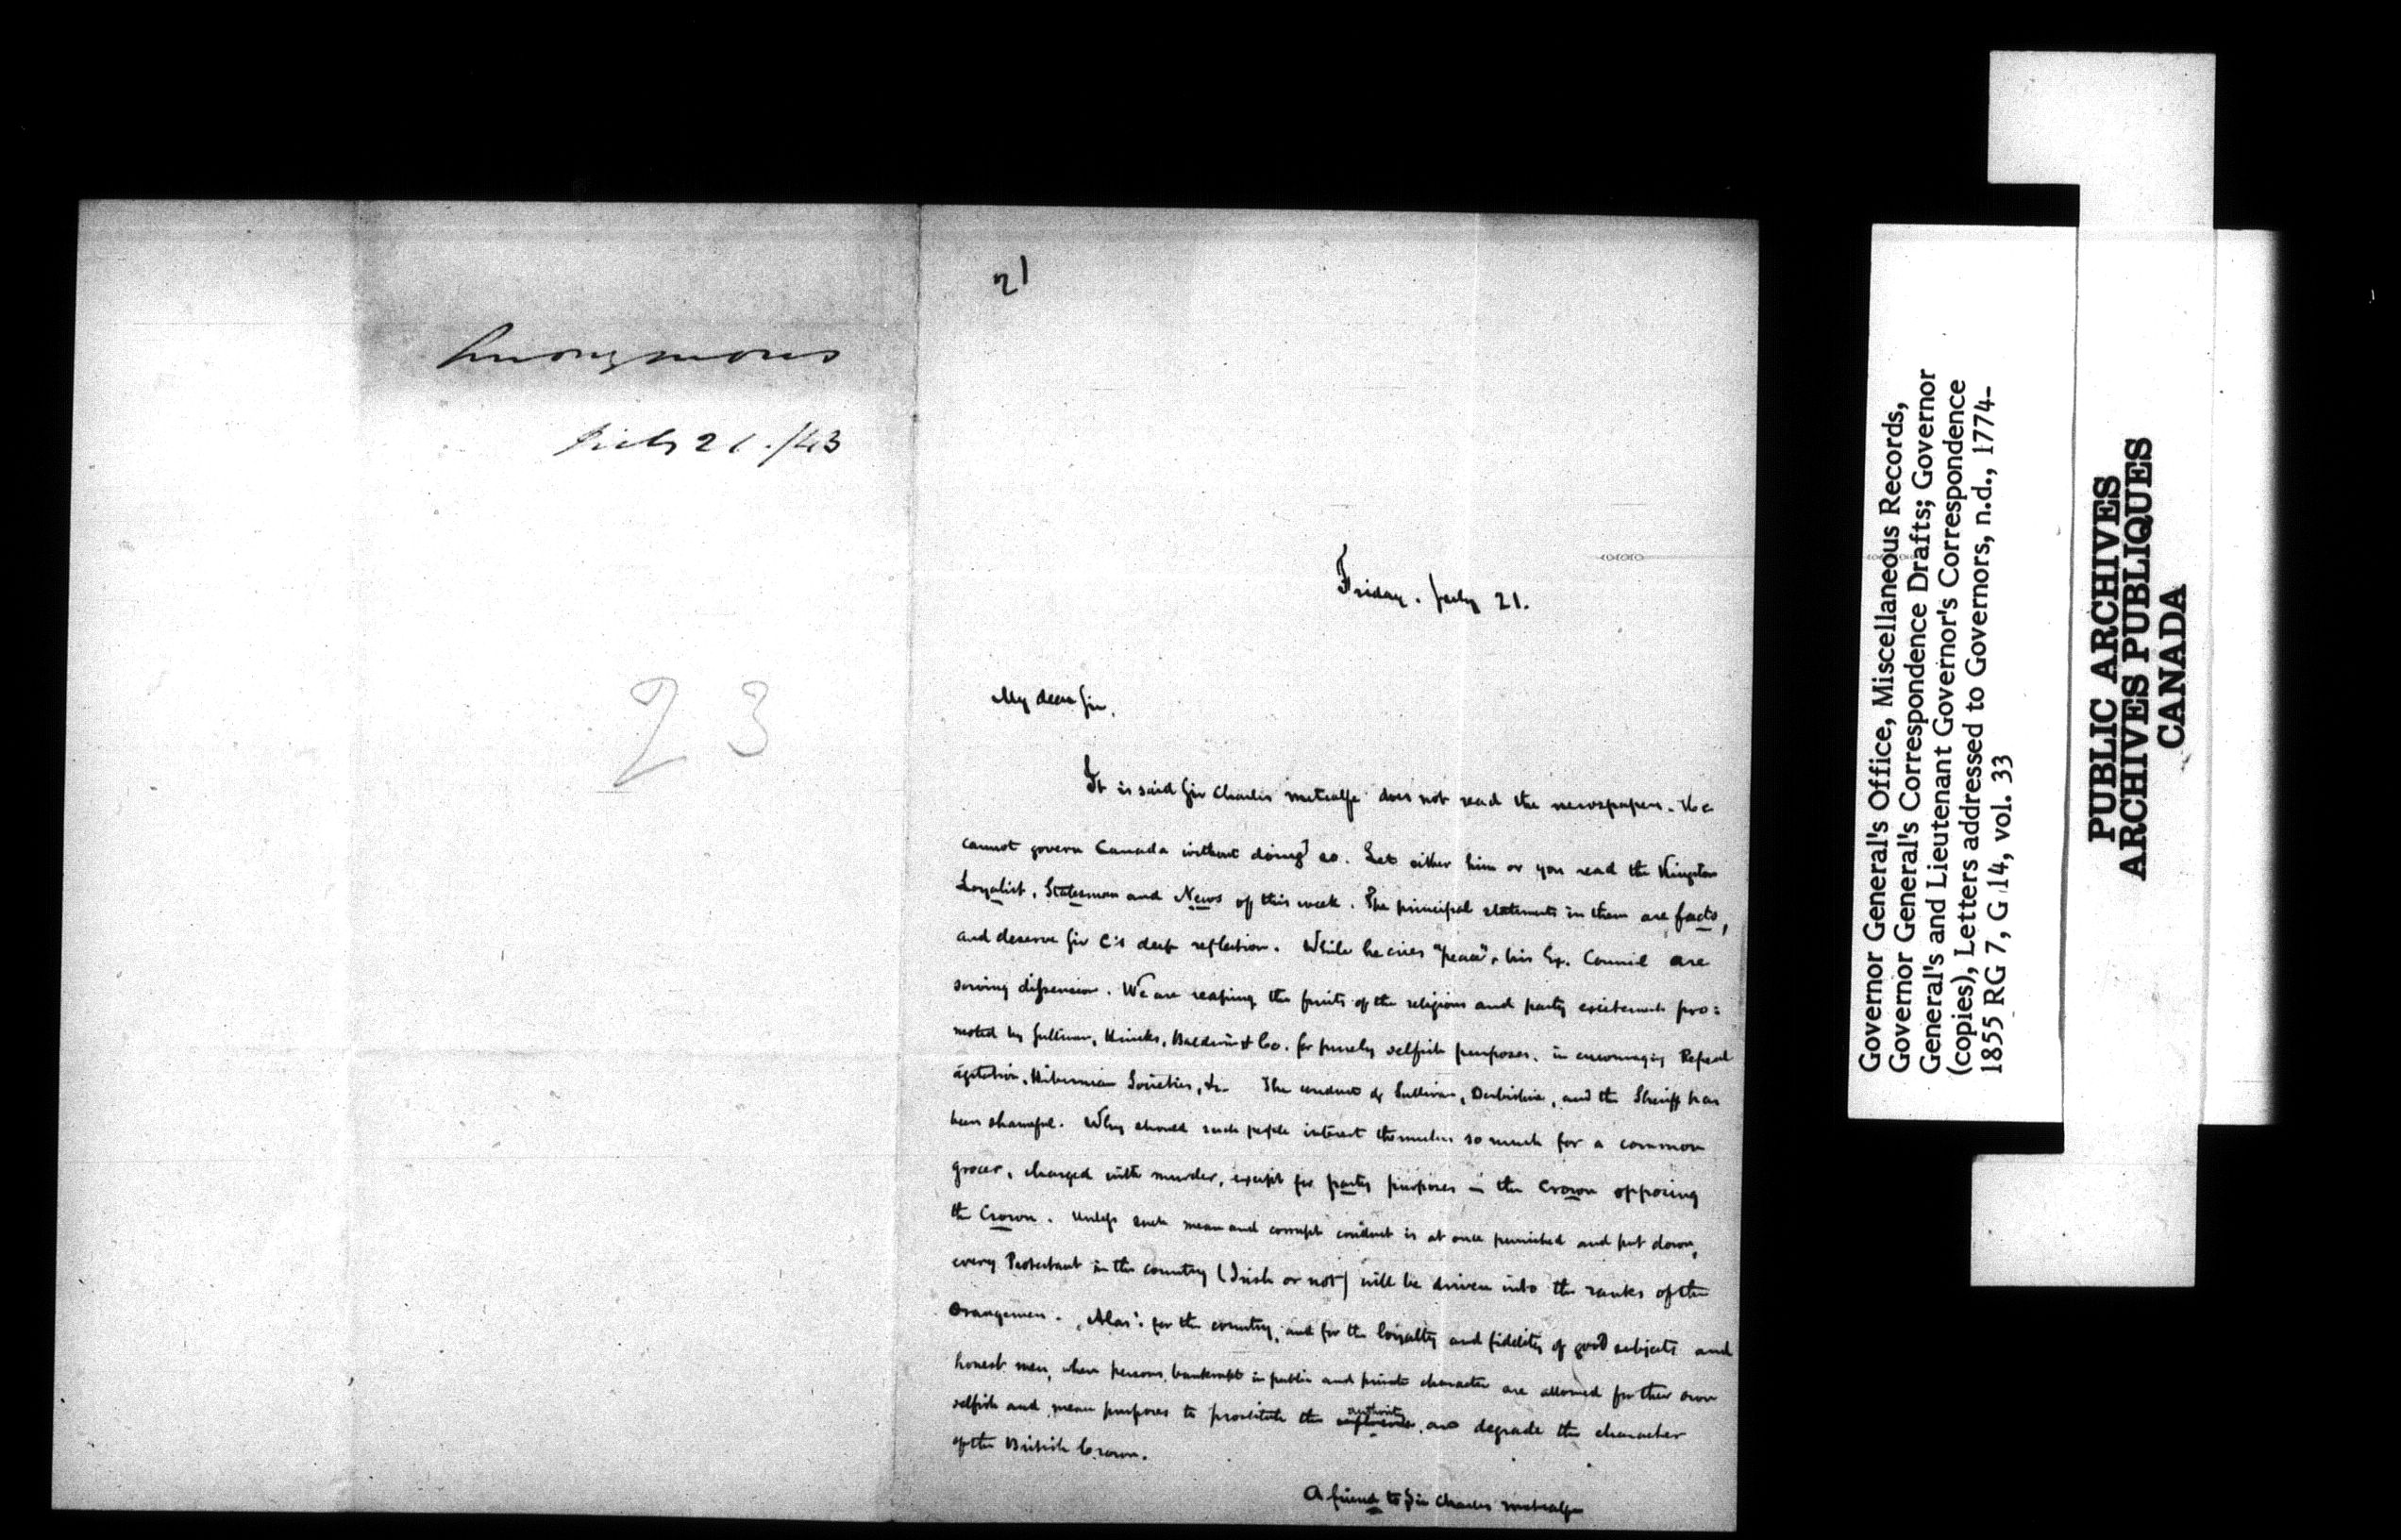 Anonymous
July 21./43
23
21
Friday. July 21.
My dear Sir,
It is said Sir Charles Metcalfe does not read the newspapers. He
cannot govern Canada without doing so. Let either him or you read the Kingston
Loyalist, Statesman and News of this week. The principal statements in them are facts,
and deserve Sir C's deep reflection. While he cries "peace", his Ex. Council are
sowing dissension. We are reaping the fruits of the religious and party excitement pro:
moted by Sullivan, Hincks, Baldwin & Co. for purely selfish purposes, in encouraging Repeal
agitation, Hibernian Societies, &c. The conduct of Sullivan, Derbishire, and the Sheriff has
been shameful. Why should such people interest themselves so much for a common
grocer, charged with murder, except for party purposes – the Crown opposing
the Crown. Unless such mean and corrupt conduct is at once punished and put down,
every Protestant in the country (Irish or not) will be driven into the ranks of the
Orangemen. Alas! for the country, and for the loyalty and fidelity of good subjects and
honest men, when persons bankrupt in public and private character are allowed for their own
selfish and mean purposes to prostitute the authority and degrade the character
of the British Crown.
A friend to Sir Charles Metcalfe
Governor General's Office, Miscellaneous Records,
Governor General's Correspondence Drafts; Governor
General's and Lieutenant Governor's Correspondence
(copies), Letters addressed to Governors, n.d., 1774-
1855 RG 7, G 14, vol. 33
PUBLIC ARCHIVES
ARCHIVES PUBLIQUES
CANADA